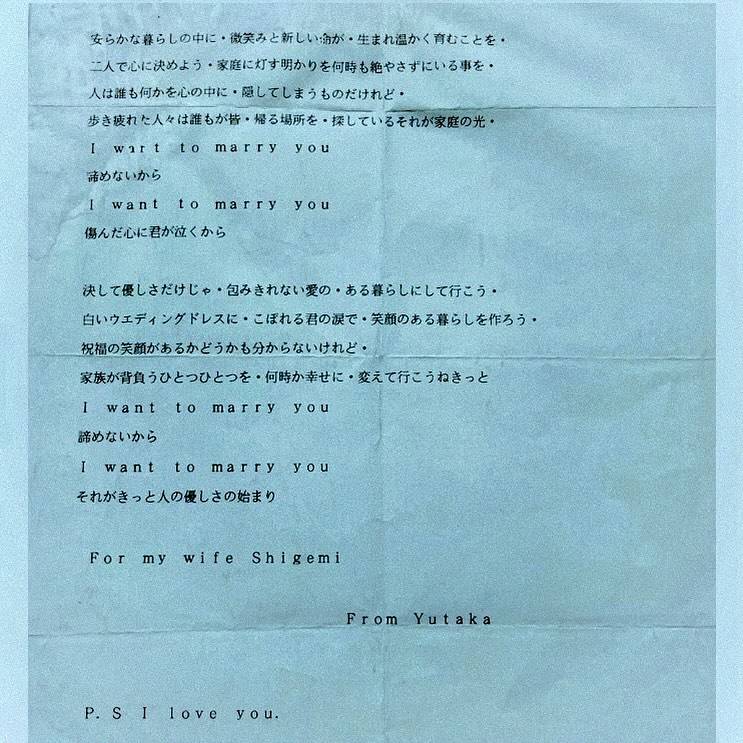 安らかな暮らしの中に・微笑みと新しい命が・生まれ温かく育むことを・
二人で心に決めよう・家庭に灯す明かりを何時も絶やさずにいる事を・
人は誰も何かを心の中に・隠してしまうものだけれど・
歩き疲れた人々は誰もが皆・帰る場所を・探しているそれが家庭の光・
I want to marry you
諦めないから
I want to marry you
傷んだ心に君が泣くから
決して優しさだけじゃ・包みきれない愛の・ある暮らしにして行こう・
白いウエディングドレスに・こぼれる君の涙で・笑顔のある暮らしを作ろう・
祝福の笑顔があるかどうかも分からないけれど・
家族が背負うひとつひとつを・何時か幸せに・変えて行こうねきっと
I want to marry you
諦めないから
I want to marry you
それがきっと人の優しさの始まり
For my wife Shigemi
From Yutaka
P.S I love you.